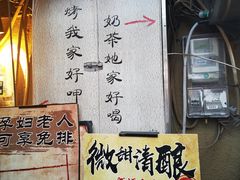 烤我家好呷
奶茶她家好喝
孕妇老人
可享免排
微甜清酿